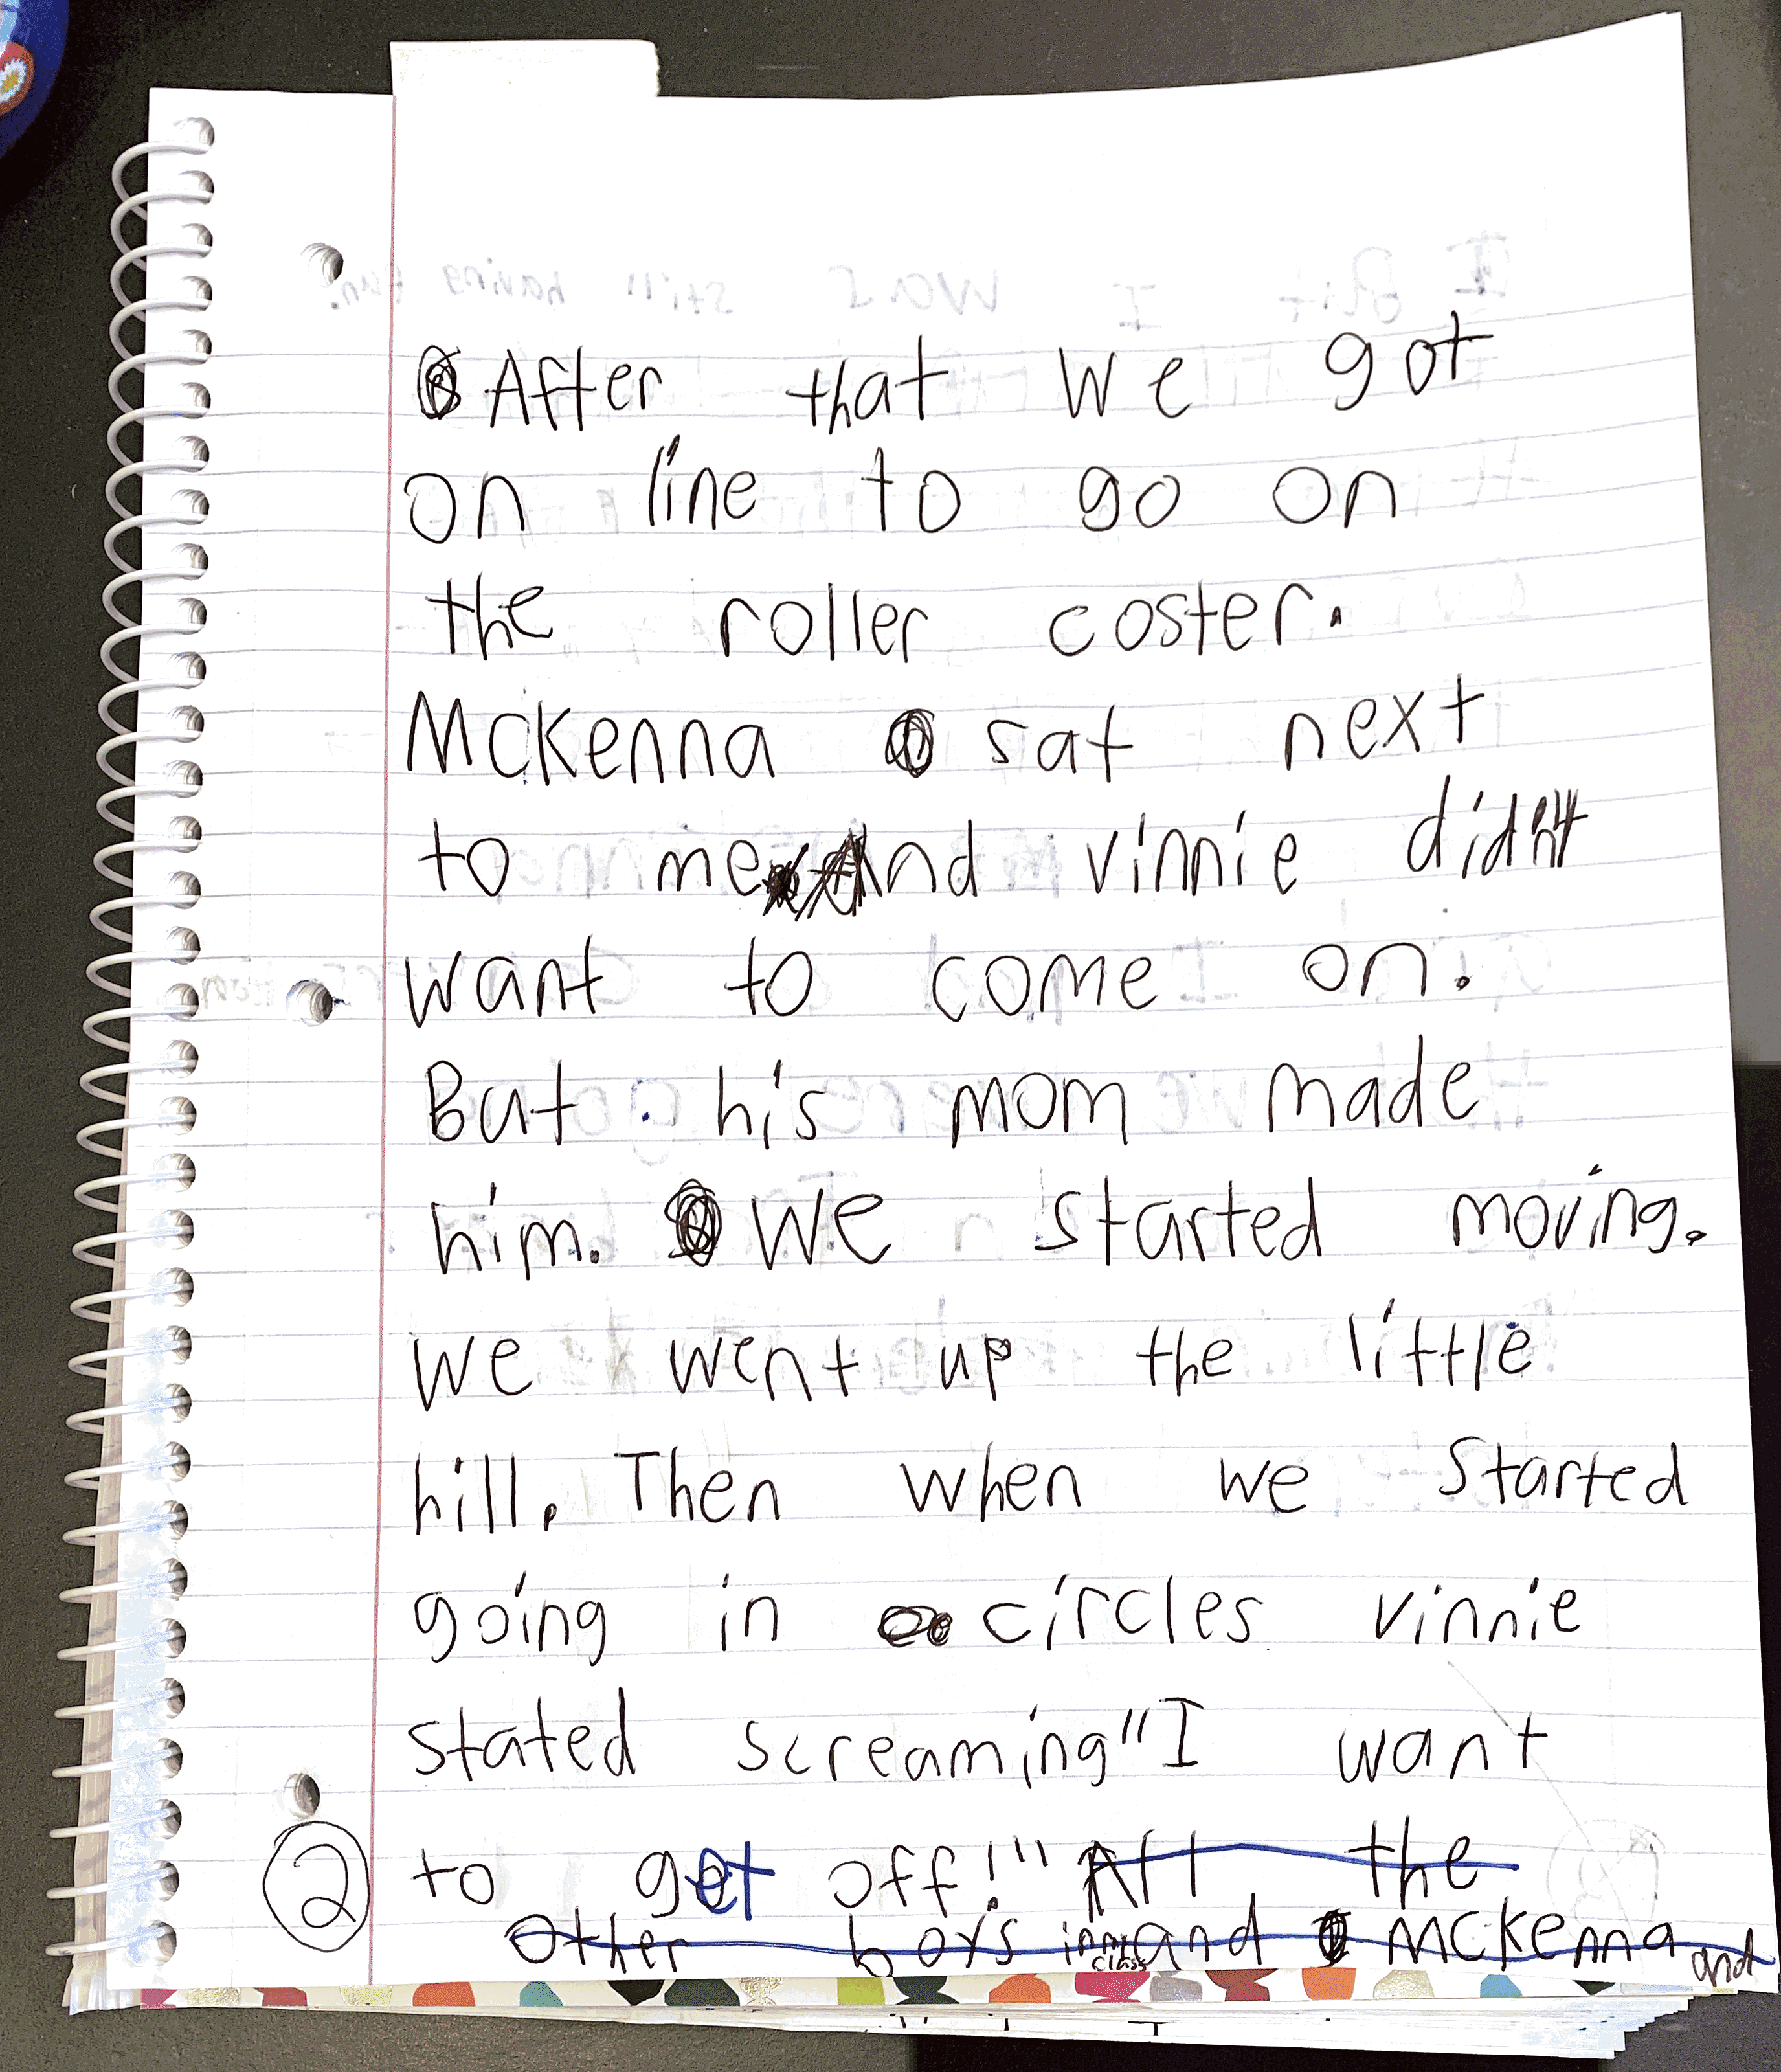 After that we got
on line to go on
the roller coster.
McKenna sat next
to me And vinnie didn't
want to come on.
But his mom made
him. We started moving.
we went up the little
hill. Then when we started
going in circles vinnie
stated screaming "I want
2 to get off!" All the
other boys in my class and McKenna and